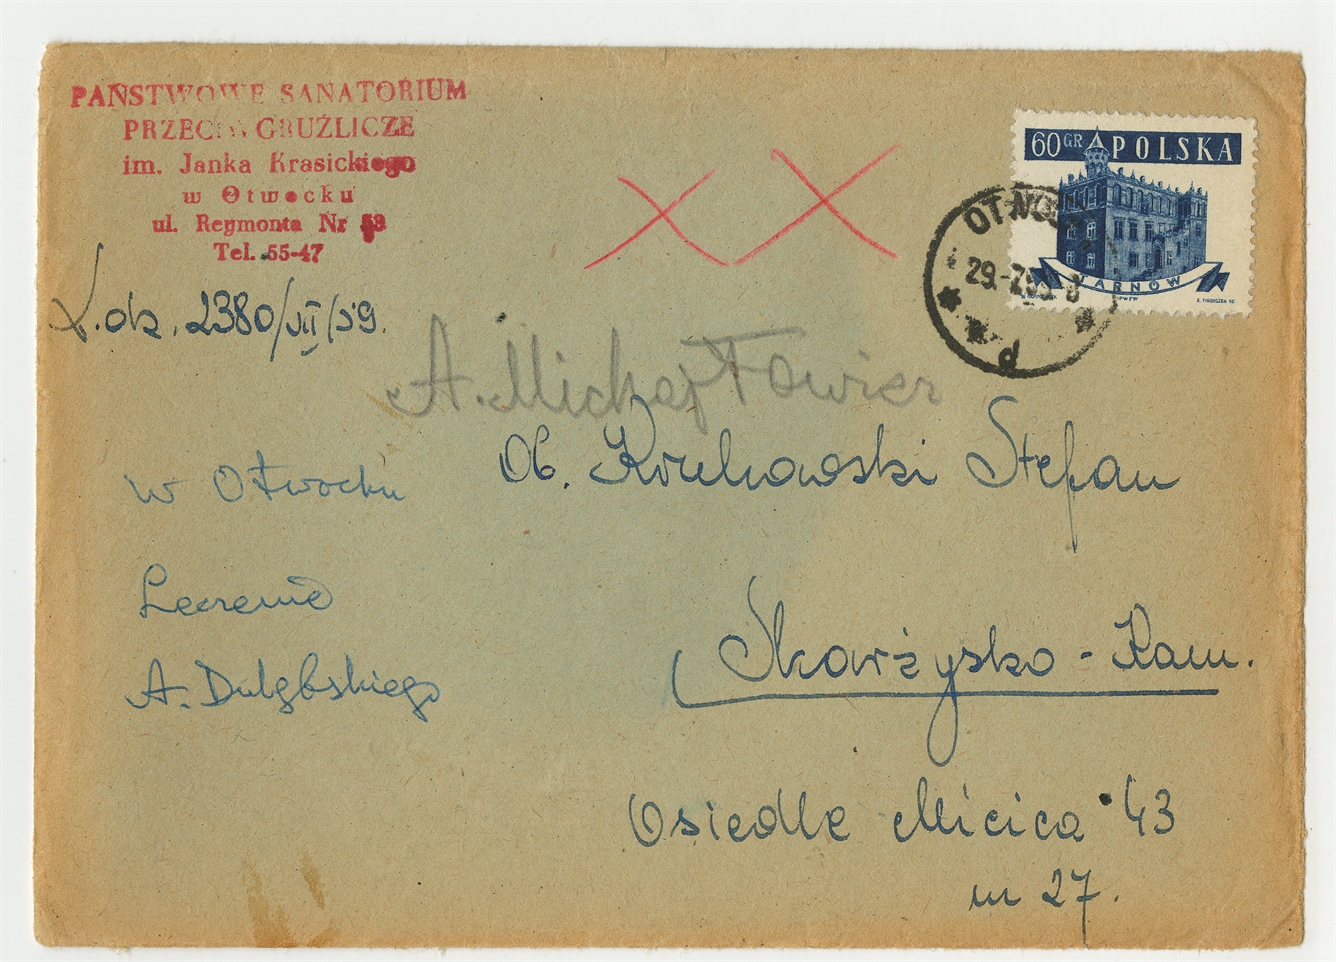 PAŃSTWOWE SANATORIUM
PRZECIWGRUŹLICZE
im. Janka Krasickiego
w Otwocku
ul. Reymonta Nr
Tel. 55-47
L.dz. 2380/VII/59.
60 GR POLSKA
TARNÓW
OTWOCK
29.-7.59.-8
A. Michaj Towicz
Ob. Krukowski Stefan
w Otwocku
Leczenie
Skarżysko-Kam.
A. Dulębskiego
Osiedle Milica 43
m 27.